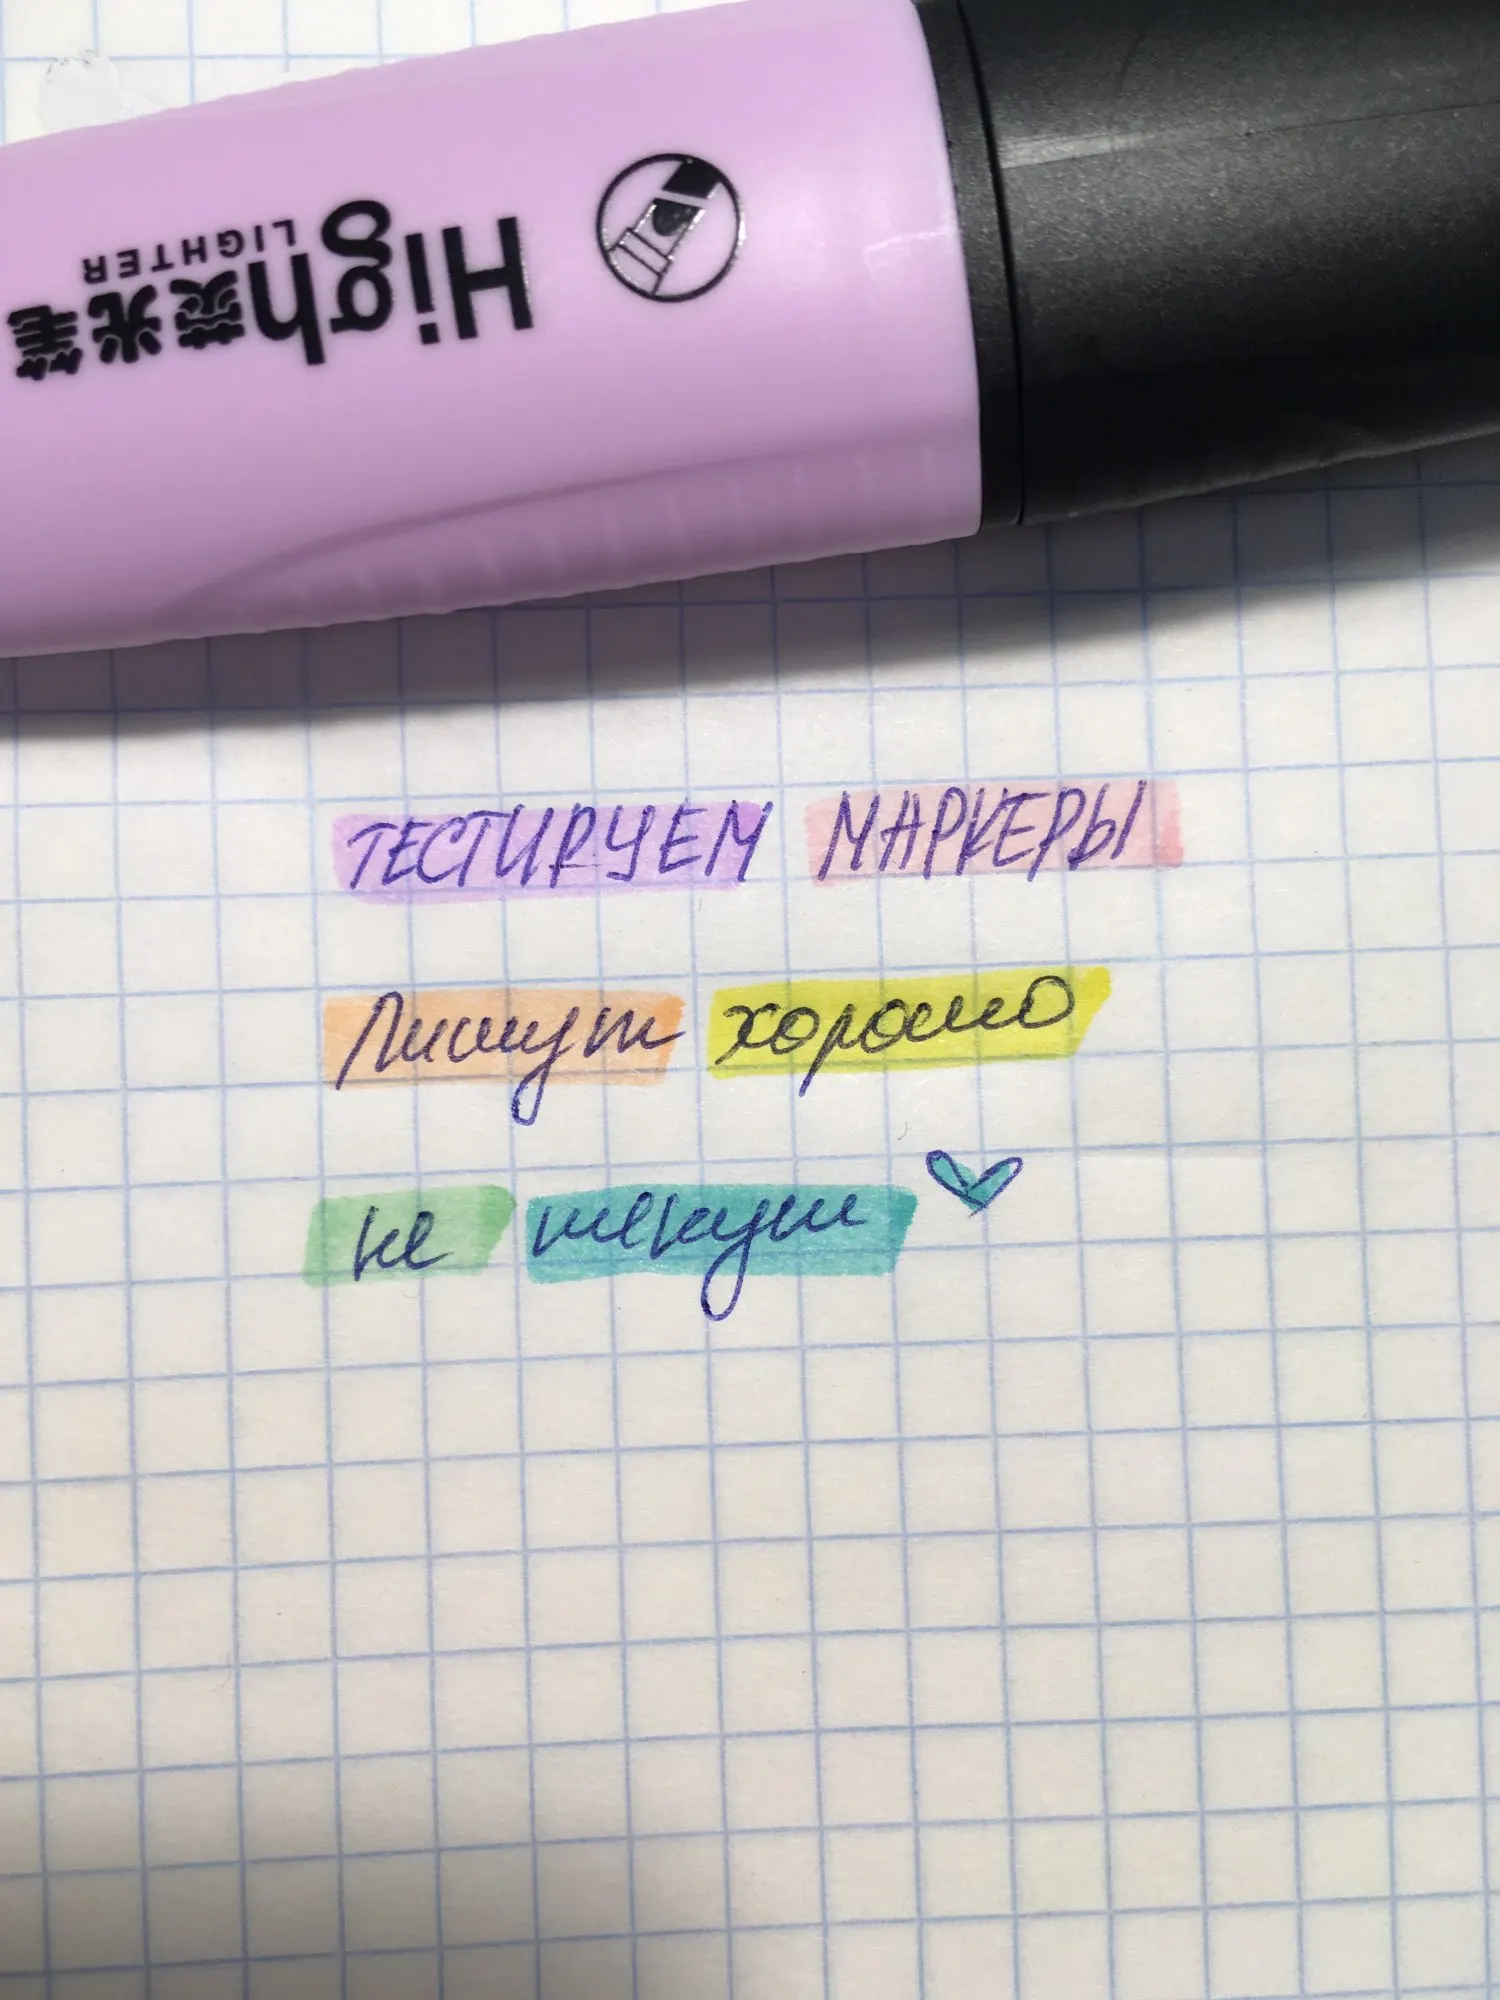 High荧光笔
LIGHTER
ТЕСТИРУЕМ МАРКЕРЫ
Пишут хорошо
не текут